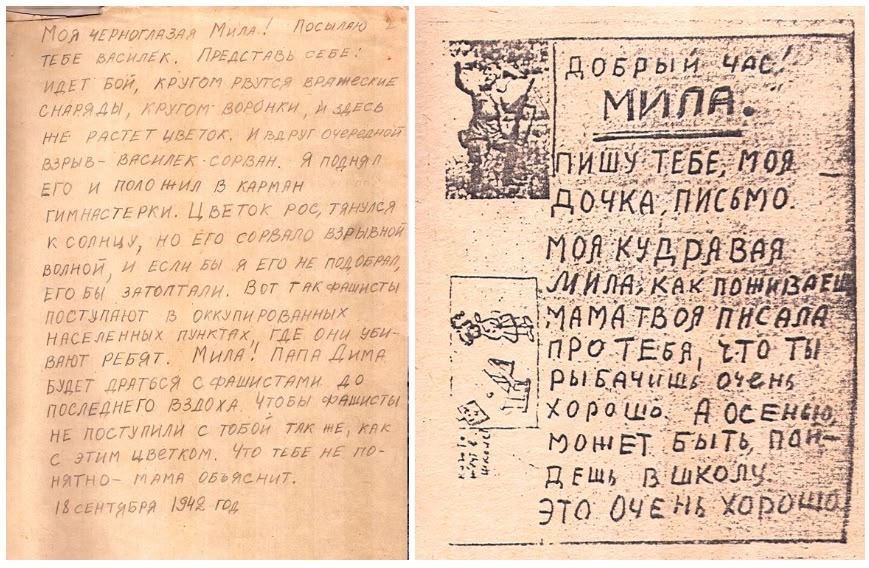 Моя черноглазая Мила! Посылаю
тебе василек. Представь себе:
идет бой, кругом рвутся вражеские
снаряды, кругом воронки, и здесь
же растет цветок. И вдруг очередной
взрыв - василек сорван. Я поднял
его и положил в карман
гимнастерки. Цветок рос, тянулся
к солнцу, но его сорвало взрывной
волной, и если бы я его не подобрал,
его бы затоптали. Вот так фашисты
поступают в оккупированных
населенных пунктах, где они уби-
вают ребят. Мила! Папа Дима
будет драться с фашистами до
последнего вздоха. Чтобы фашисты
не поступили с тобой так же, как
с этим цветком. Что тебе не по-
нятно - мама объяснит.
18 сентября 1942 год
ДОБРЫЙ ЧАС!
МИЛА.
ПИШУ ТЕБЕ, МОЯ
ДОЧКА, ПИСЬМО.
МОЯ КУДРЯВАЯ
МИЛА, КАК ПОЖИВАЕШ
МАМА ТВОЯ ПИСАЛА
ПРО ТЕБЯ, ЧТО ТЫ
РЫБАЧИШЬ ОЧЕНЬ
ХОРОШО. А ОСЕНЬЮ,
МОЖЕТ БЫТЬ, ПОЙ-
ДЕШЬ В ШКОЛУ.
ЭТО ОЧЕНЬ ХОРОШО